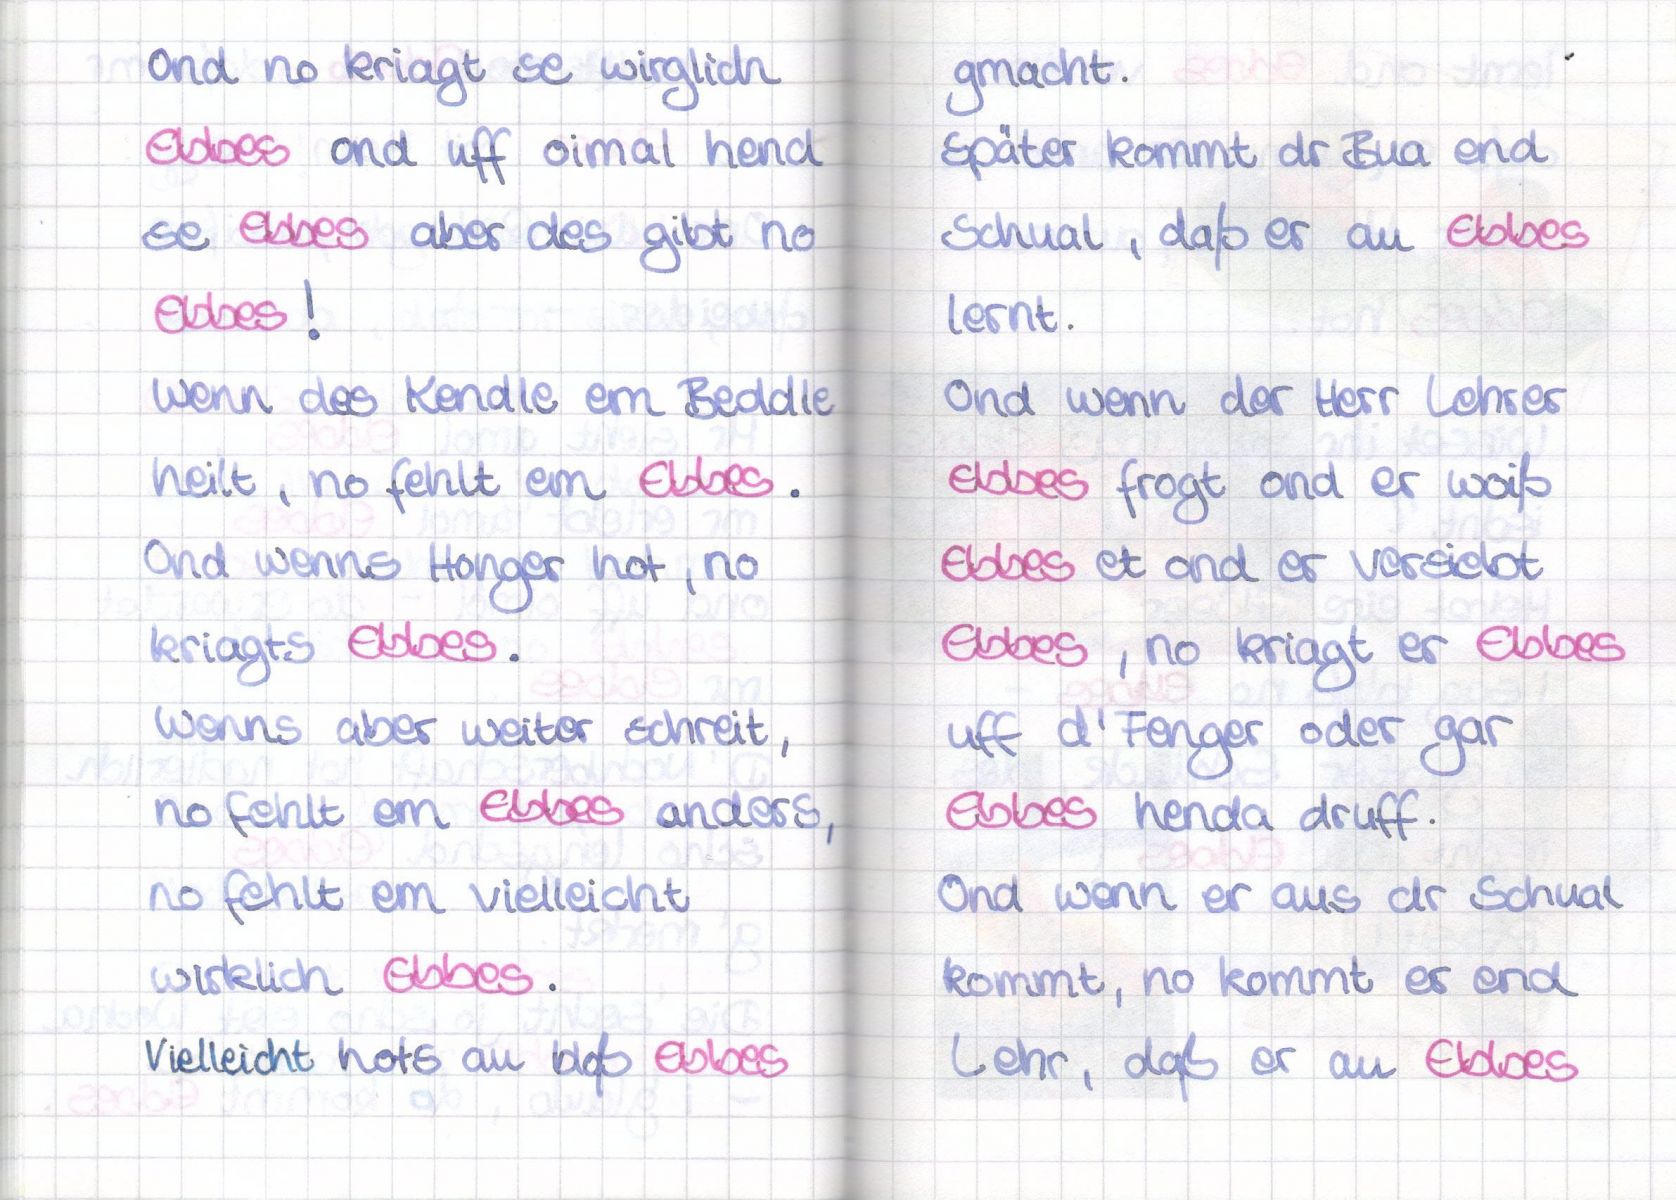 Ond no kriagt se wirglich
Ebbes ond uff oimal hend
se Ebbes aber des gibt no
Ebbes!
Wenn des Kendle em Beddle
heilt, no fehlt em Ebbes.
Ond wenns Honger hot, no
kriagts Ebbes.
Wenns aber weiter schreit,
no fehlt em Ebbes anders,
no fehlt em vielleicht
wirklich Ebbes.
Vielleicht hots au bloß Ebbes
gmacht.
Später kommt dr Bua end
Schual, daß er au Ebbes
lernt.
Ond wenn der Herr Lehrer
Ebbes frogt ond er woiß
Ebbes et ond er versiebt
Ebbes, no kriagt er Ebbes
uff d'Fenger oder gar
Ebbes henda druff.
Ond wenn er aus dr Schual
kommt, no kommt er end
Lehr, daß er au Ebbes